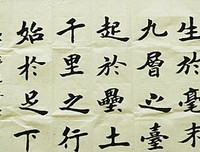 生於毫末
九層之臺
起於壘土
千里之行
始於足下